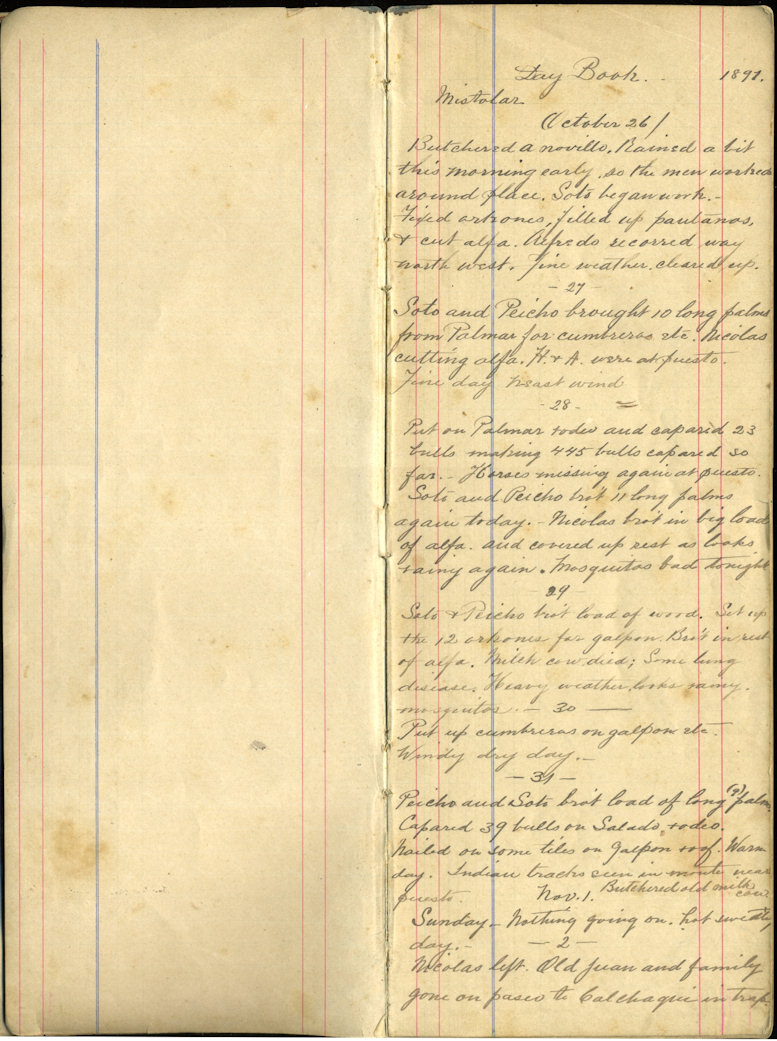 Day Book. - 1891.
Mistolar
October 26/
Butchered a novillo. Rained a bit
this morning early, so the men worked
around place. Soto began work.-
Fixed orkones, filled up pantanos,
& cut alfa. Alfredo recorred way
north west. Fine weather, cleared up.
- 27 -
Soto and Peicho brought 10 long palms
from Palmar for cumbreras etc. Nicolas
cutting alfa. H. & A. were at puesto.
Fine day N. east wind
- 28 -
Put on Palmar rodeo and capared 23
bulls making 445 bulls capared so
far. - Horses missing again at puesto.
Soto and Peicho bro't 11 long palms
again today. - Nicolas bro't in big load
of alfa. and covered up rest as looks
rainy again. Mosquitos bad tonight
- 29
Soto & Peicho bro't load of wood. Set up
the 12 orkones for galpon. Bro't in rest
of alfa. Milch cow died; Some lung
disease. Heavy weather, looks rainy.
mosquitos. - 30 -
Put up cumbreras on galpon etc.
Windy dry day. -
- 31 -
Peicho and Soto bro't load of long (9) palms
Capared 39 bulls on Salado rodeo.
Nailed on some tiles on galpon roof. Warm
day. Indian tracks seen in monte near
puesto. Nov. 1. Butchered old milk cow
Sunday - Nothing going on. hot sweaty
day. - - 2 -
Nicolas left. Old Juan and family
gone on paseo to Calchaqui in trap.